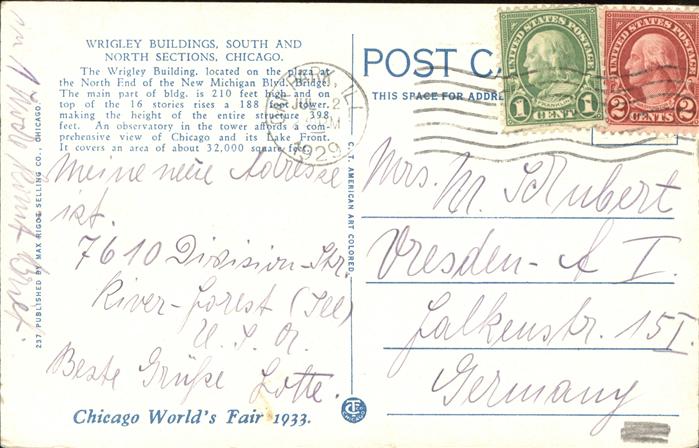 WRIGLEY BUILDINGS, SOUTH AND
NORTH SECTIONS, CHICAGO.
The Wrigley Building, located on the plaza at
the North End of the New Michigan Blvd. Bridge.
The main part of bldg. is 210 feet high and on
top of the 16 stories rises a 188 foot tower,
making the height of the entire structure 398
feet. An observatory in the tower affords a com-
prehensive view of Chicago and its Lake Front.
It covers an area of about 32,000 square feet.
Meine neue Adresse
ist.
7610 Division-Str.
River-Forest (Ill)
U. S. A.
Beste Grüße Lotte.
Chicago World's Fair 1933.
237 PUBLISHED BY MAX RIGOT SELLING CO., CHICAGO
C. T. AMERICAN ART COLORED
POST CA
THIS SPACE FOR ADDRE
UNITED STATES POSTAGE
FRANKLIN
1 CENT 1
UNITED STATES POSTAGE
2 CENTS 2
PARK, ILL
1929
Mrs. M. Schubert
Dresden-A I.
Falkenstr. 15 I.
Germany